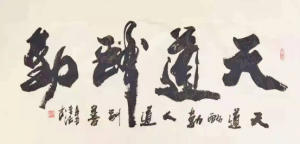 天道酬勤
天道酬勤人道酬善